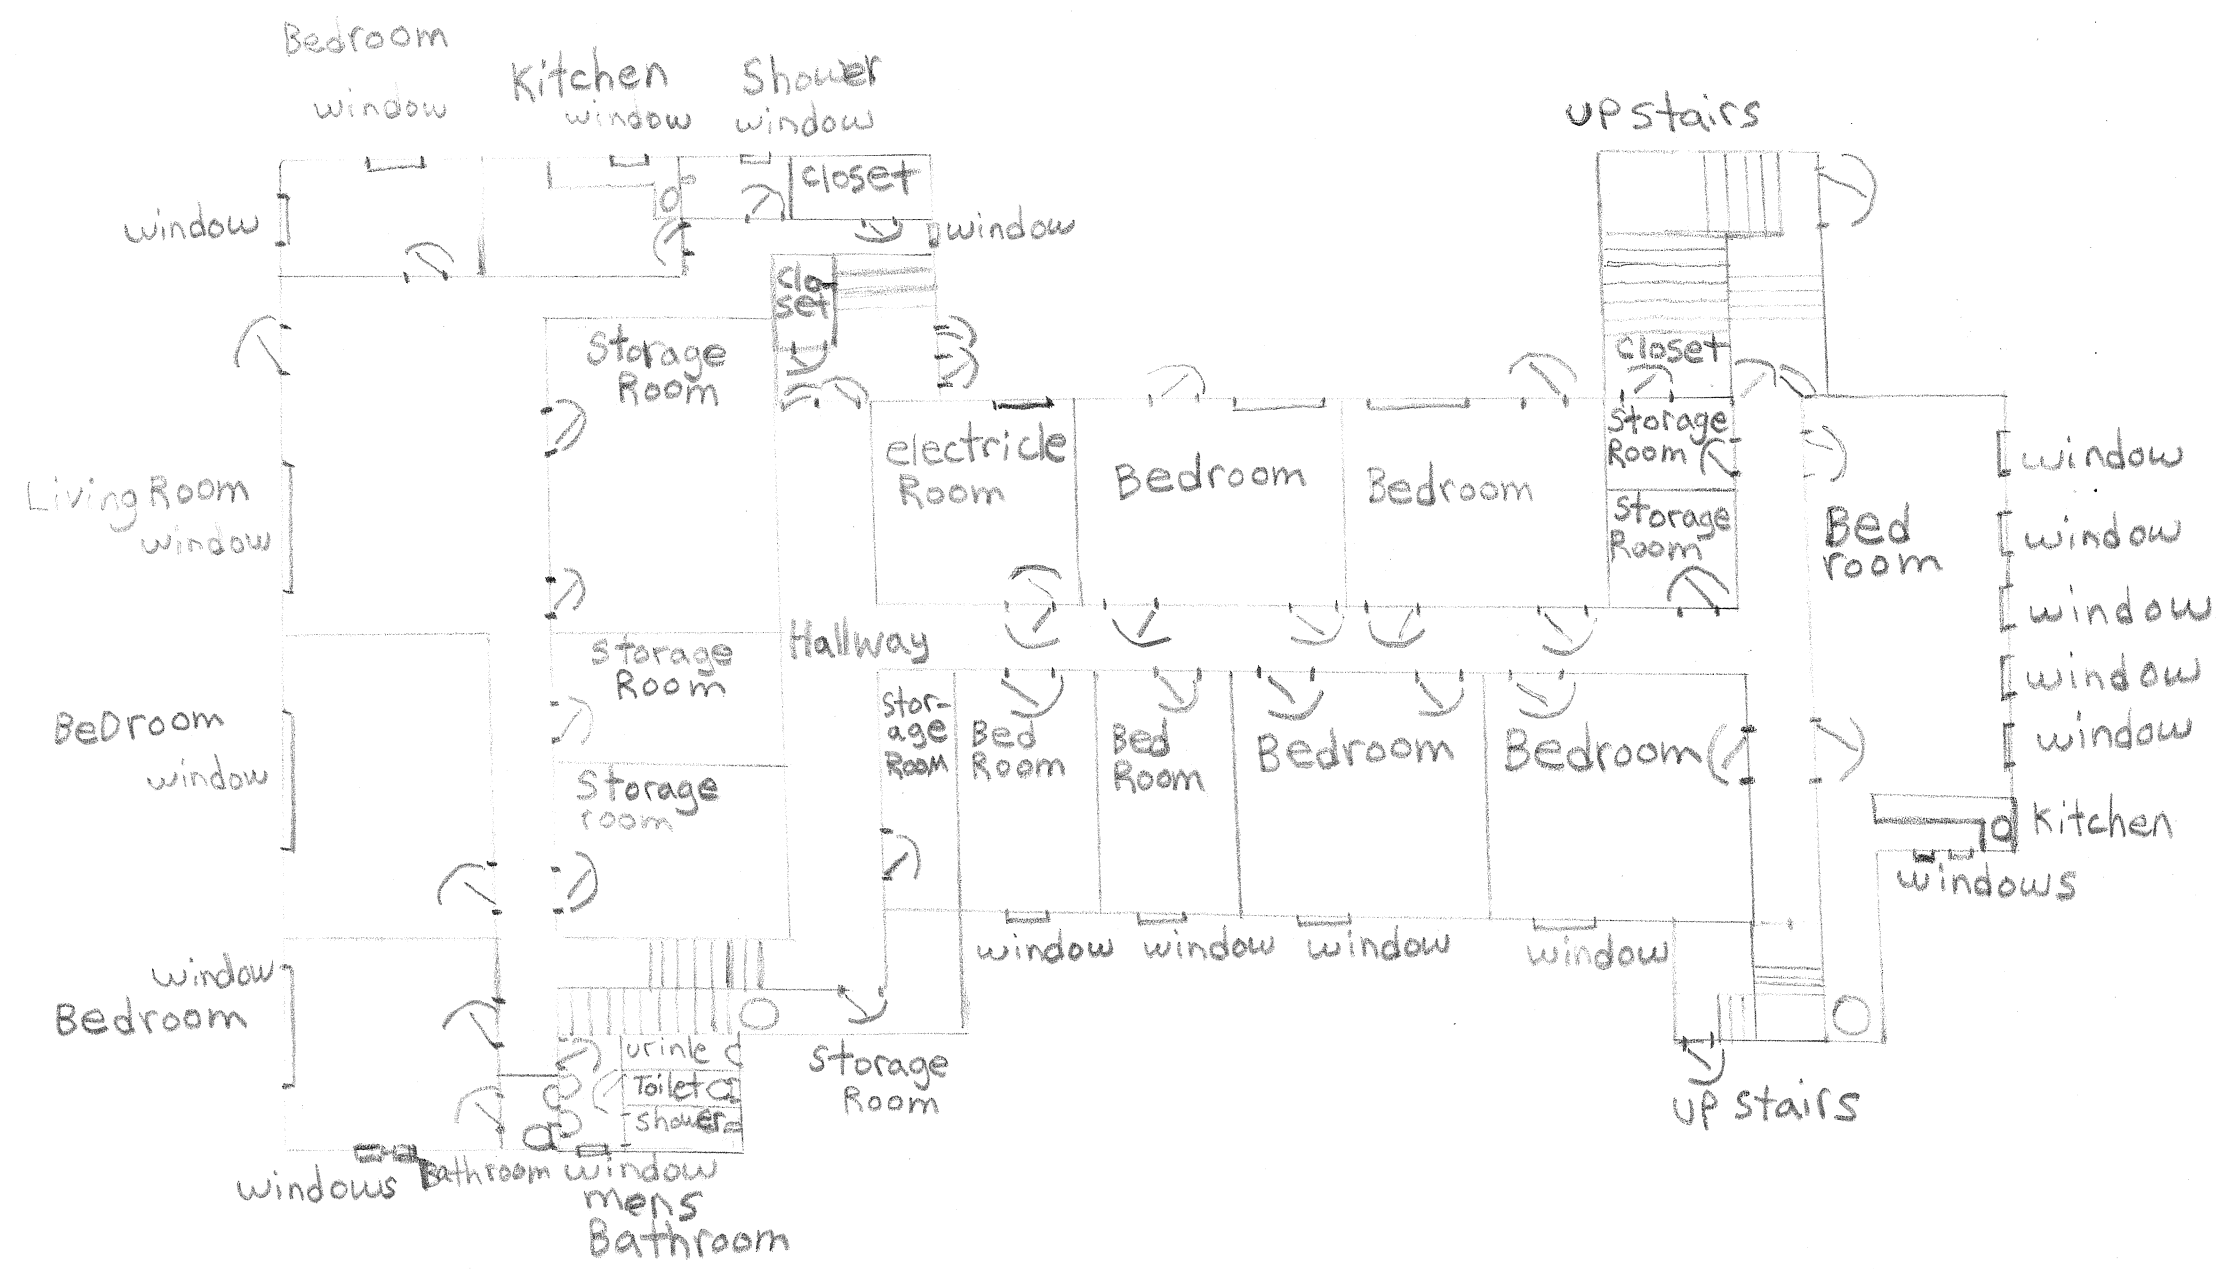 Bedroom
window
Kitchen
window
Shower
window
upstairs
closet
window
window
clo
set
Storage
Room
closet
Storage
Room
electricle
Room
Bedroom
Bedroom
Storage
Room
Bed
room
window
window
window
window
window
Living Room
window
Hallway
Storage
Room
Stor-
age
Room
Bed
Room
Bed
Room
Bedroom
Bedroom
BeDroom
window
Storage
room
Kitchen
windows
window
window
window
window
window
Bedroom
urinle
Toilet
Shower
Storage
Room
up stairs
windows
Bathroom
window
mens
Bathroom